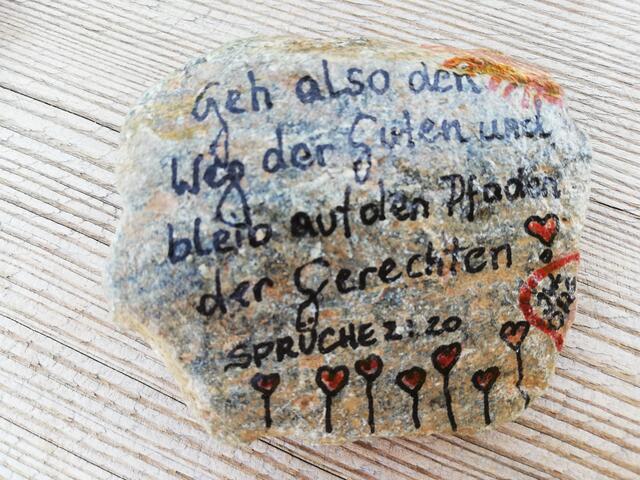 Geh also den
Weg der Guten und
bleib auf den Pfaden
der Gerechten
SPRÜCHE 2:20